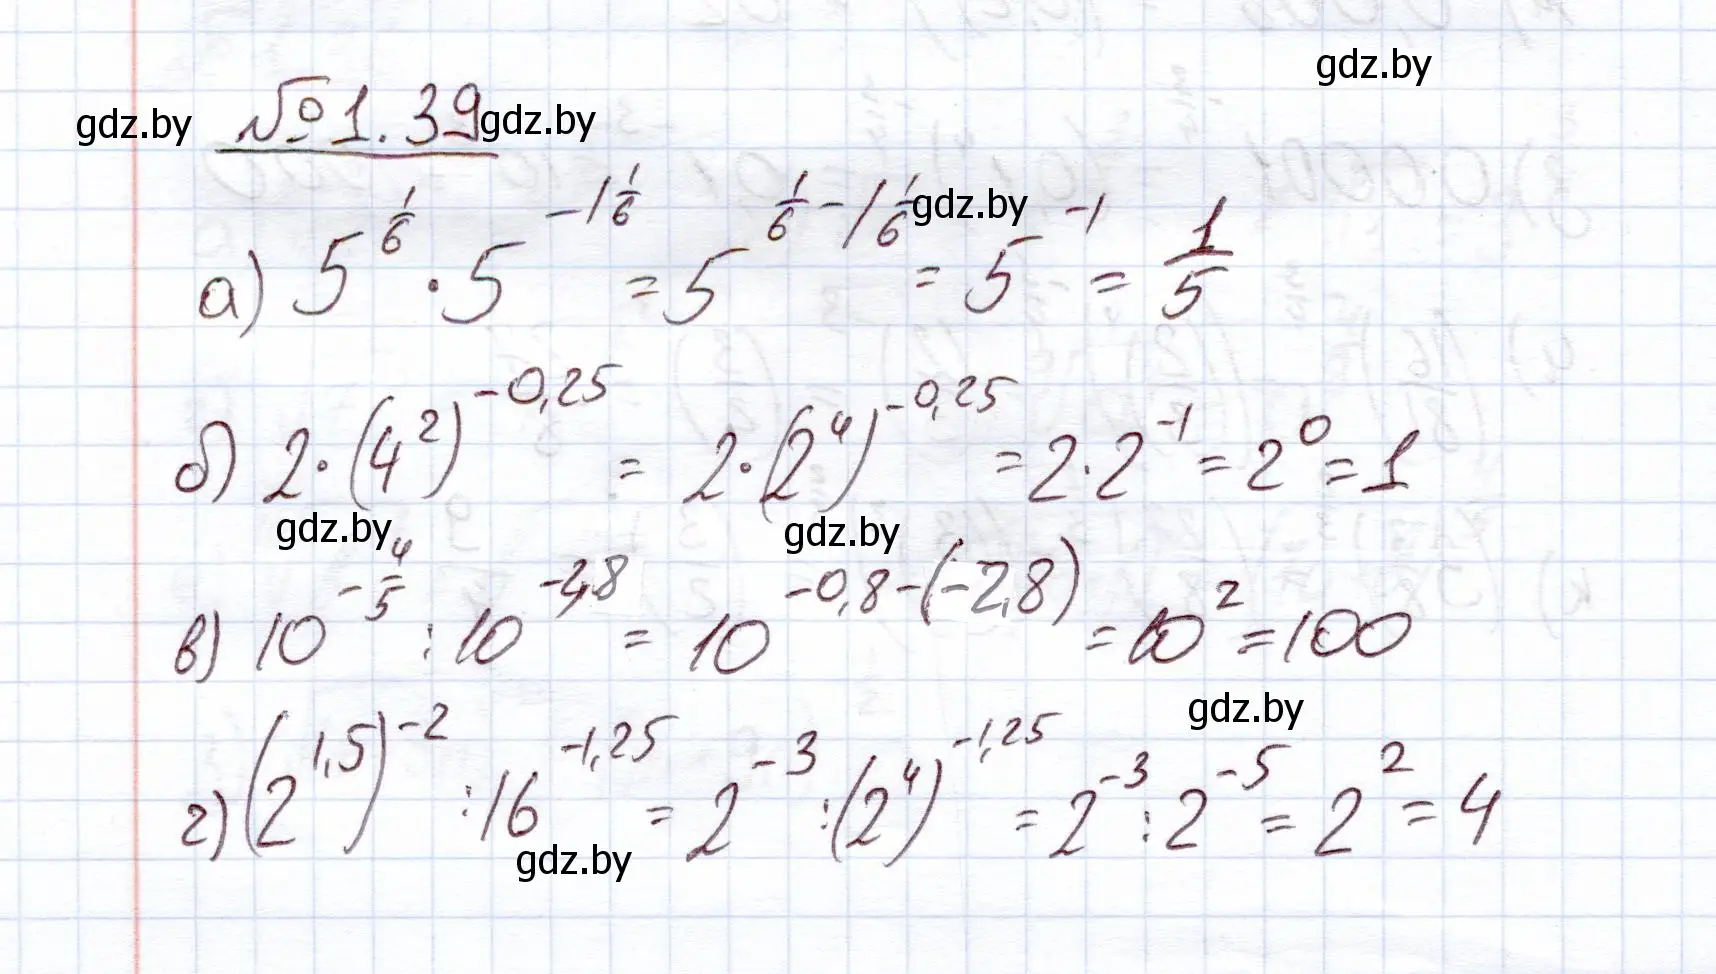 gdz.by
gdz.by № 1.39 gdz.by
а) 5^{1/6} · 5^{-1 1/6} = 5^{1/6 - 1 1/6} = 5^{-1} = 1/5
gdz.by
б) 2 · (4^2)^{-0,25} = 2 · (2^4)^{-0,25} = 2 · 2^{-1} = 2^0 = 1
gdz.by gdz.by
в) 10^{-4/5} : 10^{-2,8} = 10^{-0,8-(-2,8)} = 10^2 = 100
gdz.by
г) (2^{1,5})^{-2} : 16^{-1,25} = 2^{-3} : (2^4)^{-1,25} = 2^{-3} : 2^{-5} = 2^2 = 4
gdz.by